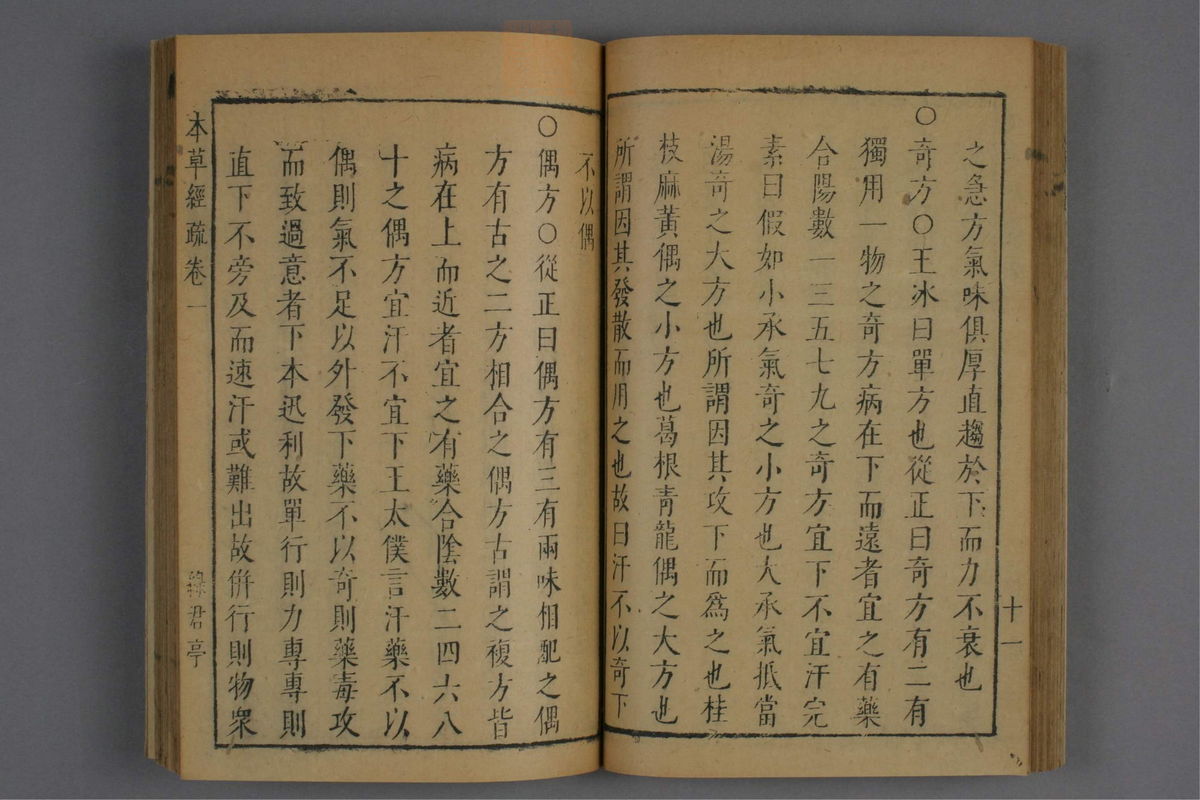 十一
之急方氣味俱厚直趨於下而力不衰也
○奇方○王冰曰單方也從正曰奇方有二有
獨用一物之奇方病在下而遠者宜之有藥
合陽數一三五七九之奇方宜下不宜汗完
素曰假如小承氣奇之小方也大承氣抵當
湯奇之大方也所謂因其攻下而為之也桂
枝麻黃偶之小方也葛根青龍偶之大方也
所謂因其發散而用之也故曰汗不以奇下
不以偶
○偶方○從正曰偶方有三有兩味相配之偶
方有古之二方相合之偶方古謂之複方皆
病在上而近者宜之有藥合陰數二四六八
十之偶方宜汗不宜下王太僕言汗藥不以
偶則氣不足以外發下藥不以奇則藥毒攻
而致過意者下本迅利故單行則力專專則
直下不旁及而速汗或難出故併行則物衆
本草經疏卷一
綠君亭